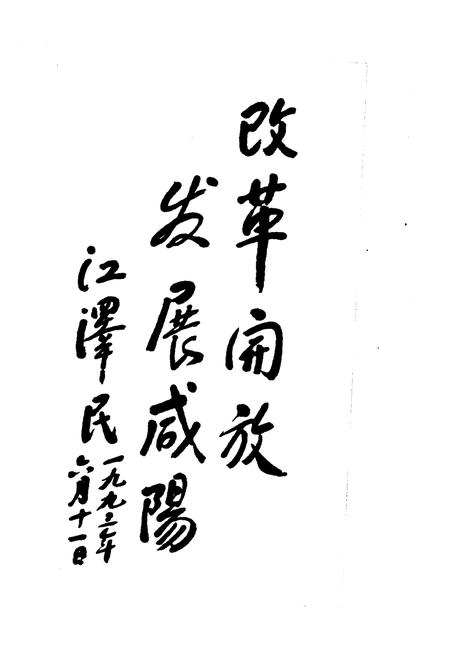 改革開放
发展咸陽
江澤民
一九九三年
六月十一日